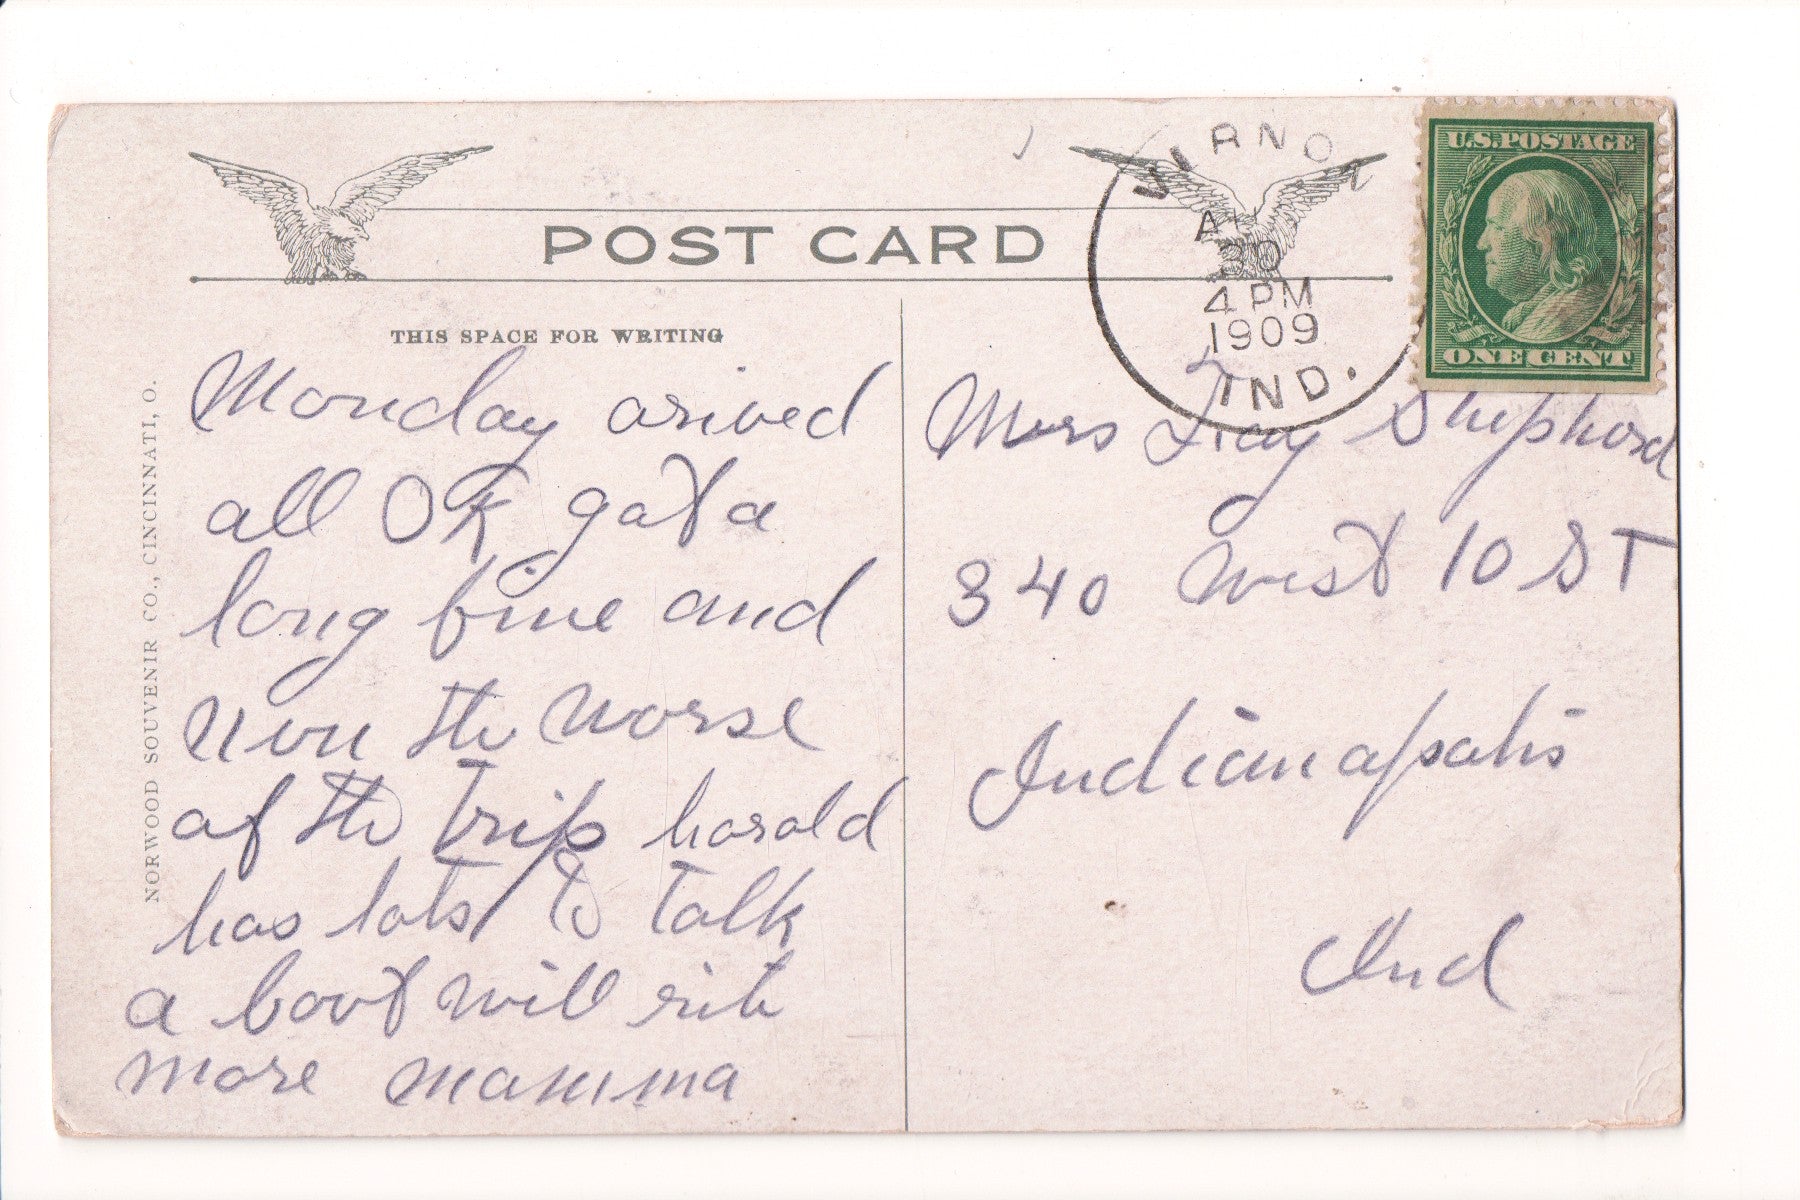 POST CARD
VERNON
A
30
4 PM
1909
IND.
U.S. POSTAGE
ONE CENT
THIS SPACE FOR WRITING
Monday arived
all OK gat a
long fine and
non the worse
af the Trip harold
has lots to Talk
a bout will rite
more mamma
Mrs Fay Shepherd
340 West 10 ST
Indianapolis
Ind
NORWOOD SOUVENIR CO., CINCINNATI, O.